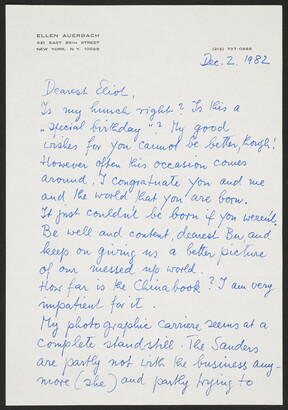 ELLEN AUERBACH
521 EAST 85TH STREET
NEW YORK, N.Y. 10028
(212) 737-0886
Dec. 2. 1982
Dearest Eliot,
Is my hunch right? Is this a
"special birthday"? My good
wishes for you cannot be better, though!
However often this occasion comes
around, I congratuate you and me
and the world that you are born.
It just couldn't be born if you weren't.
Be well and content, dearest and
keep on giving us a better picture
of our messed up world.
How far is the Chinabook? I am very
impatient for it.
My photographic carriere seems at a
complete standstill. The Sanders
are partly not with the business any-
more (she) and partly trying to